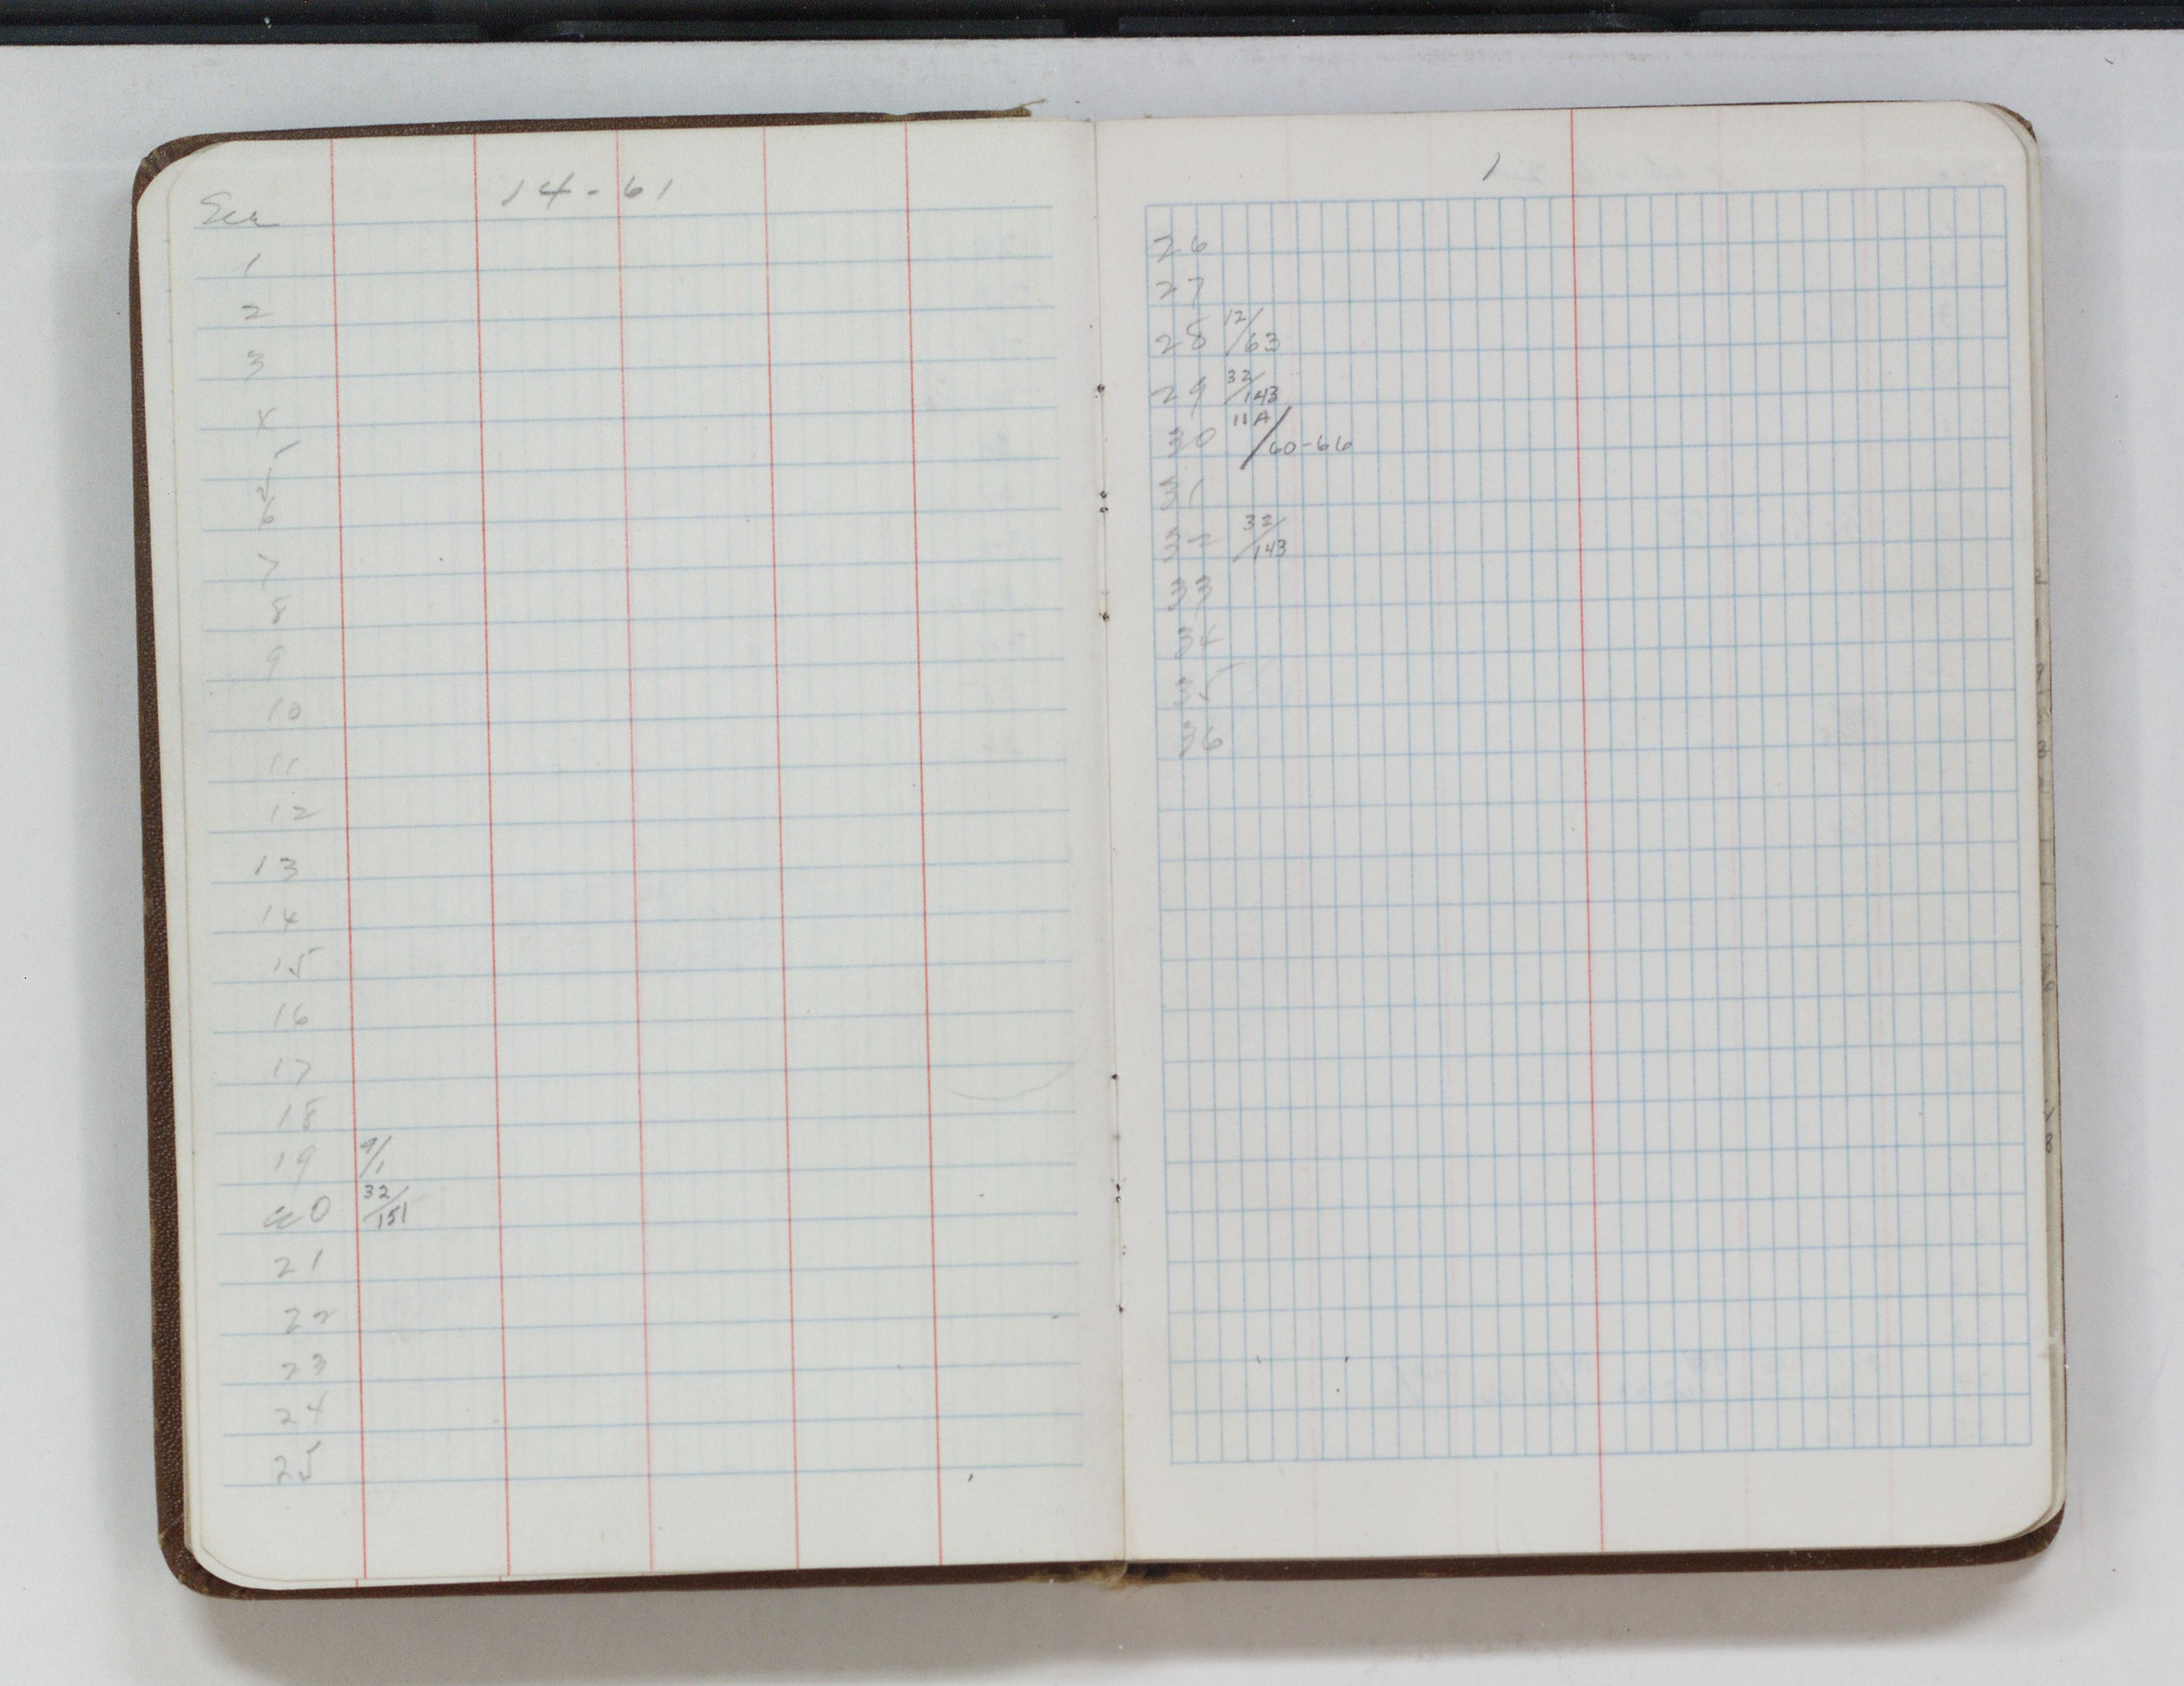 Sec 14-61
1
2
3
4
5
6
7
8
9
10
11
12
13
14
15
16
17
18
19 9/1
20 32/151
21
22
23
24
25
1
26
27
28 12/63
29 32/143
30 11A/60-66
31
32 32/143
33
34
35
36